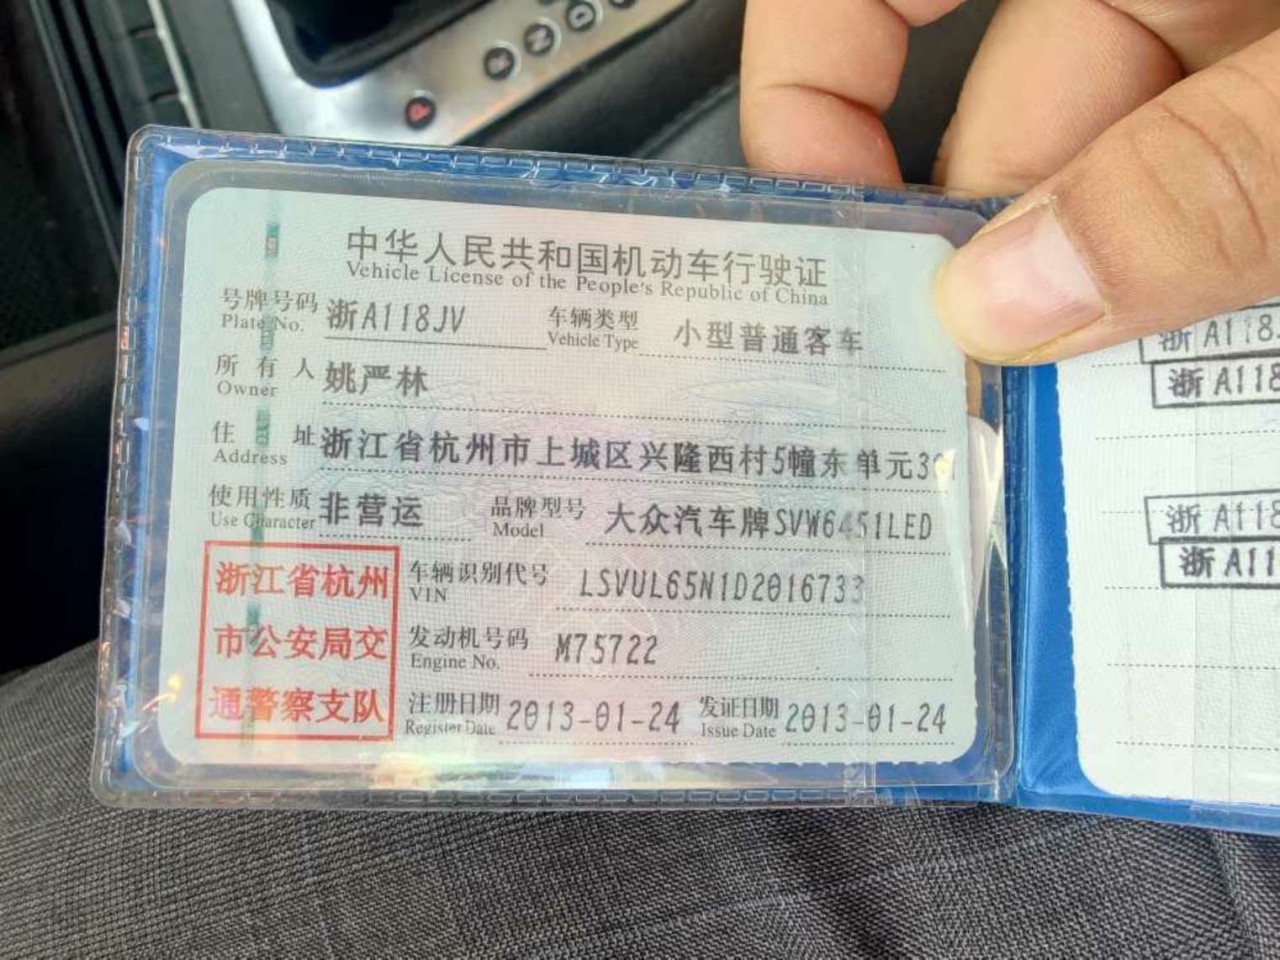 中华人民共和国机动车行驶证
Vehicle License of the People's Republic of China
号牌号码 浙A118JV 车辆类型 小型普通客车
Plate No. Vehicle Type
所有人 姚严林
Owner
住址 浙江省杭州市上城区兴隆西村5幢东单元
Address
使用性质 非营运 品牌型号 大众汽车牌SVW6451LED
Use Character Model
浙江省杭州
市公安局交
通警察支队
车辆识别代号 LSVUL65N1D2016733
VIN
发动机号码 M75722
Engine No.
注册日期 2013-01-24 发证日期 2013-01-24
Register Date Issue Date
浙A118
浙A118
浙A118
浙A11
P
R
N
D